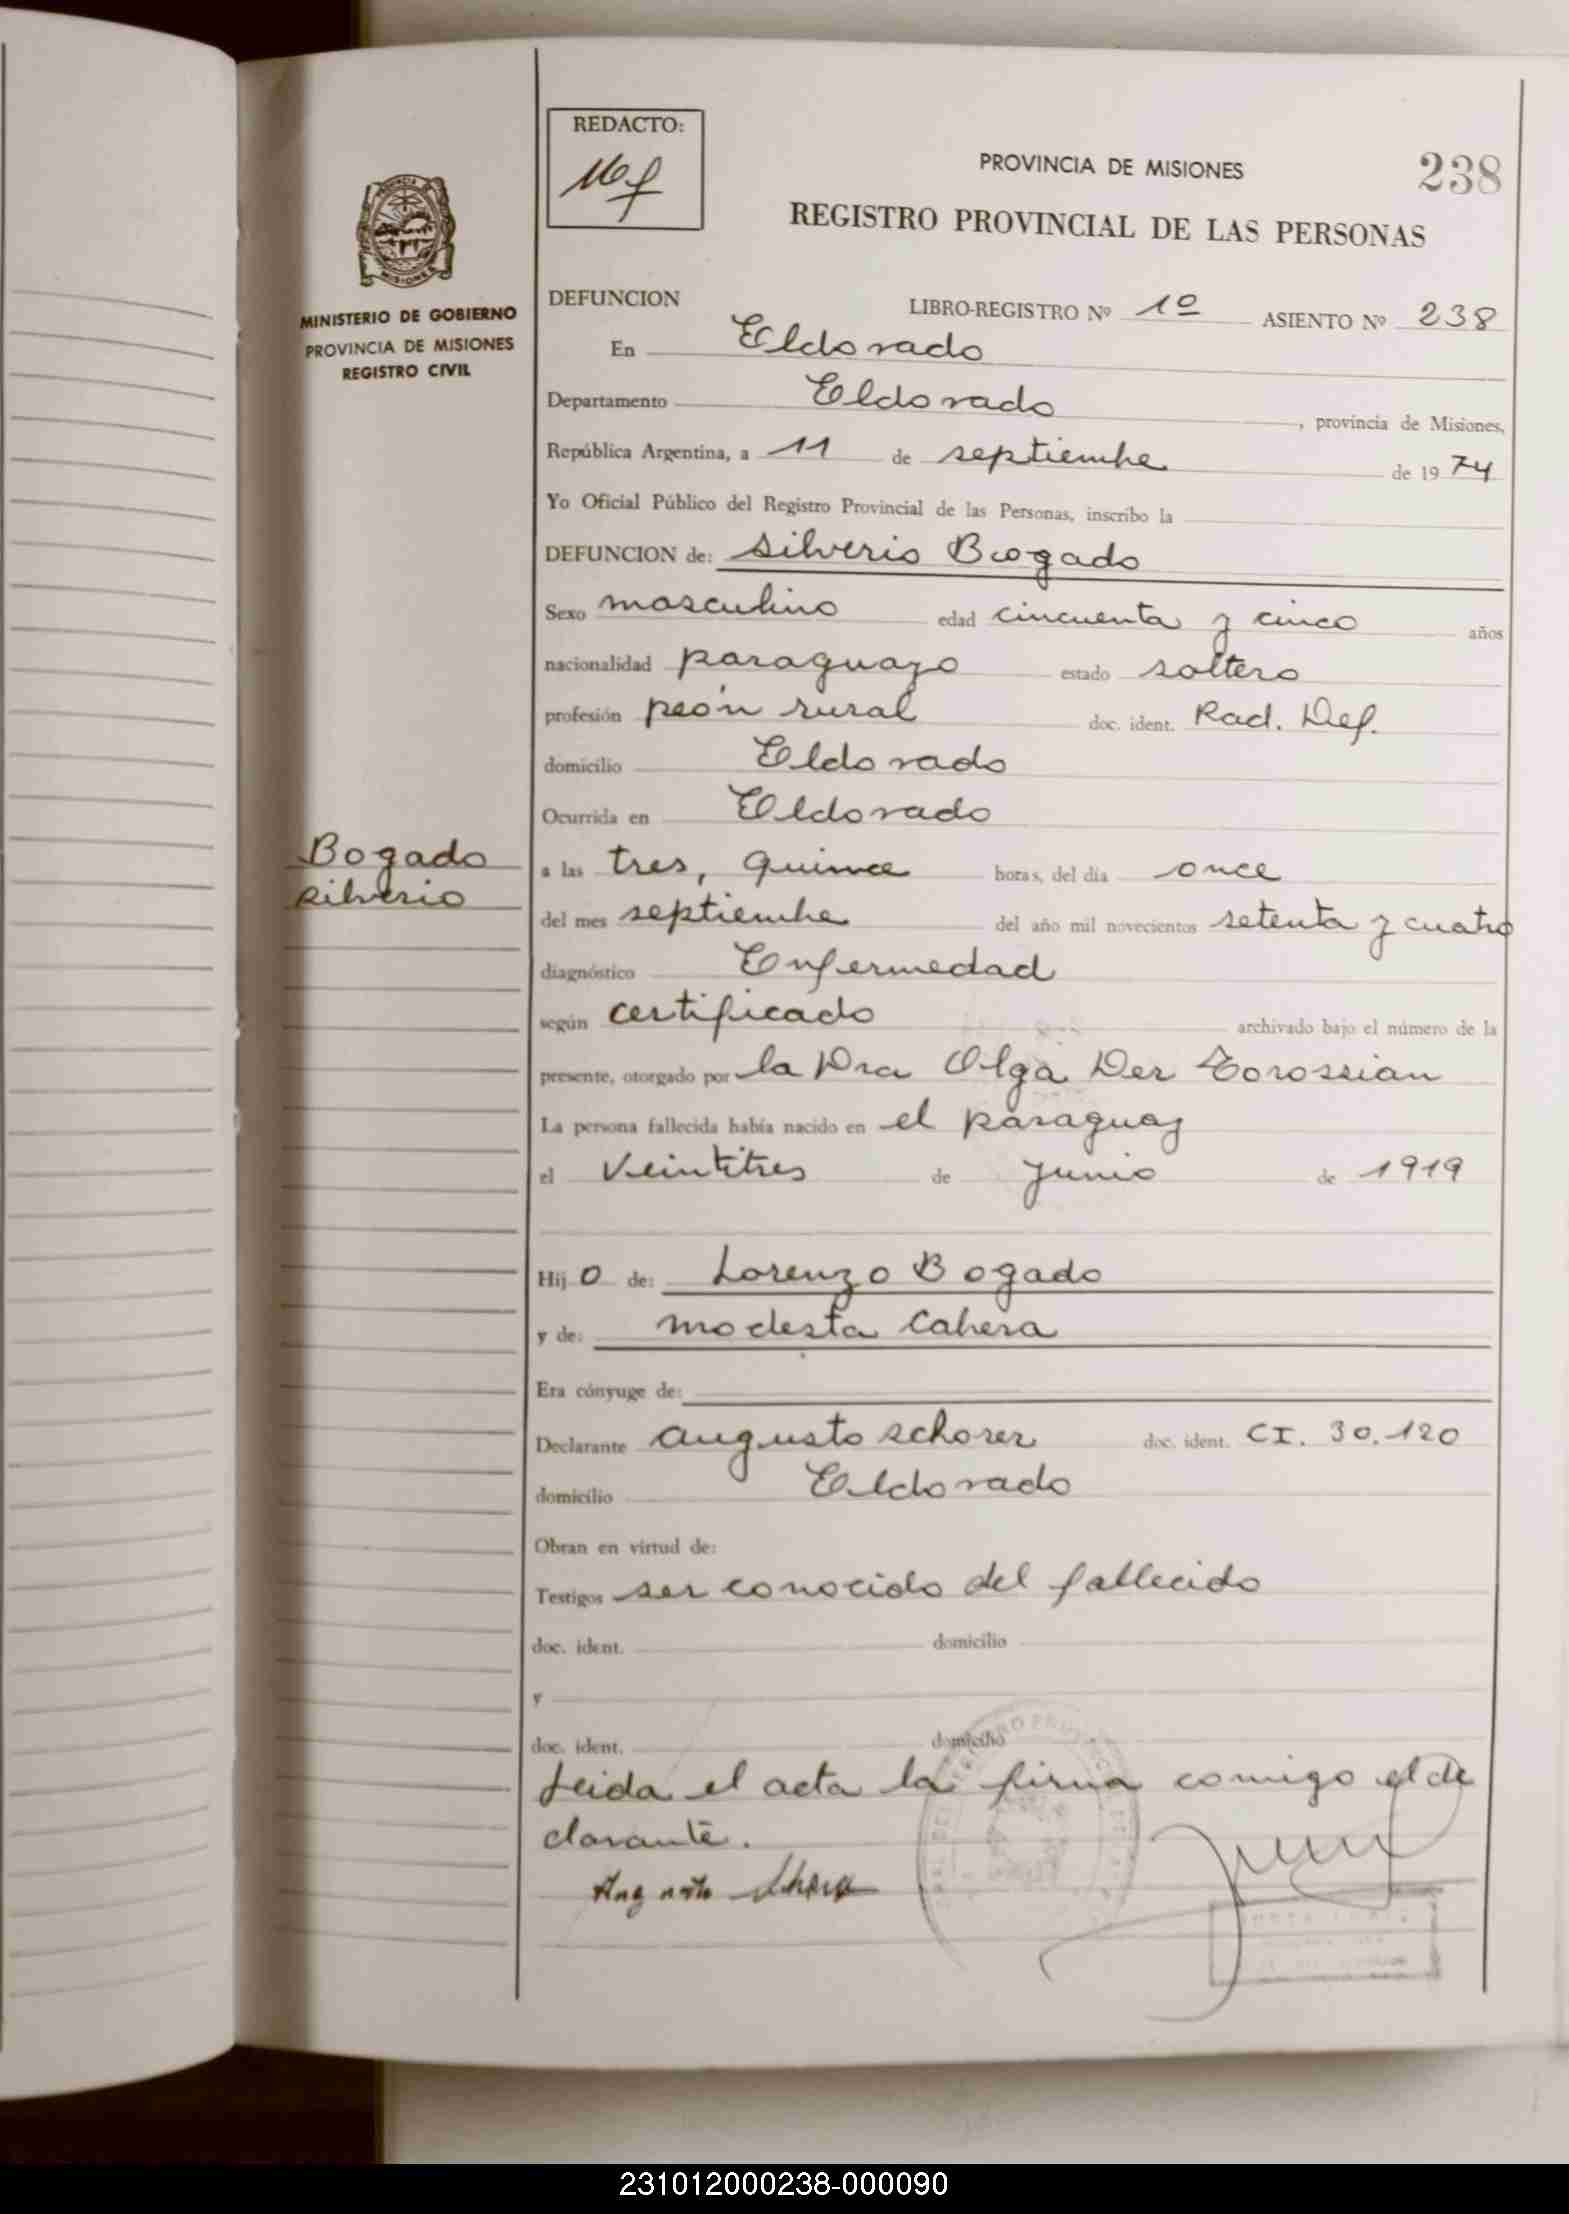 REDACTO:
PROVINCIA DE MISIONES
238
REGISTRO PROVINCIAL DE LAS PERSONAS
MINISTERIO DE GOBIERNO
PROVINCIA DE MISIONES
REGISTRO CIVIL
DEFUNCION LIBRO-REGISTRO Nº 1º ASIENTO Nº 238
En Eldorado
Departamento Eldorado, provincia de Misiones,
República Argentina, a 11 de septiembre de 1974
Yo Oficial Público del Registro Provincial de las Personas, inscribo la
DEFUNCION de: Silverio Bogado
Sexo masculino edad cincuenta y cinco años
nacionalidad paraguayo estado soltero
profesión peón rural doc. ident. Rad. Def.
domicilio Eldorado
Ocurrida en Eldorado
Bogado
Silverio
a las tres, quince horas, del día once
del mes septiembre del año mil novecientos setenta y cuatro
diagnóstico Enfermedad
según certificado archivado bajo el número de la
presente, otorgado por la Dra Olga Der Torossian
La persona fallecida había nacido en el paraguay
el Veintitres de junio de 1919
Hijo de: Lorenzo Bogado
y de: modesta Cabera
Era cónyuge de:
Declarante augusto schorer doc. ident. CI. 30.120
domicilio Eldorado
Obran en virtud de:
Testigos ser conocido del fallecido
doc. ident. domicilio
y
doc. ident. domicilio
Leida el acta la firma comigo el de
clarante.
231012000238-000090